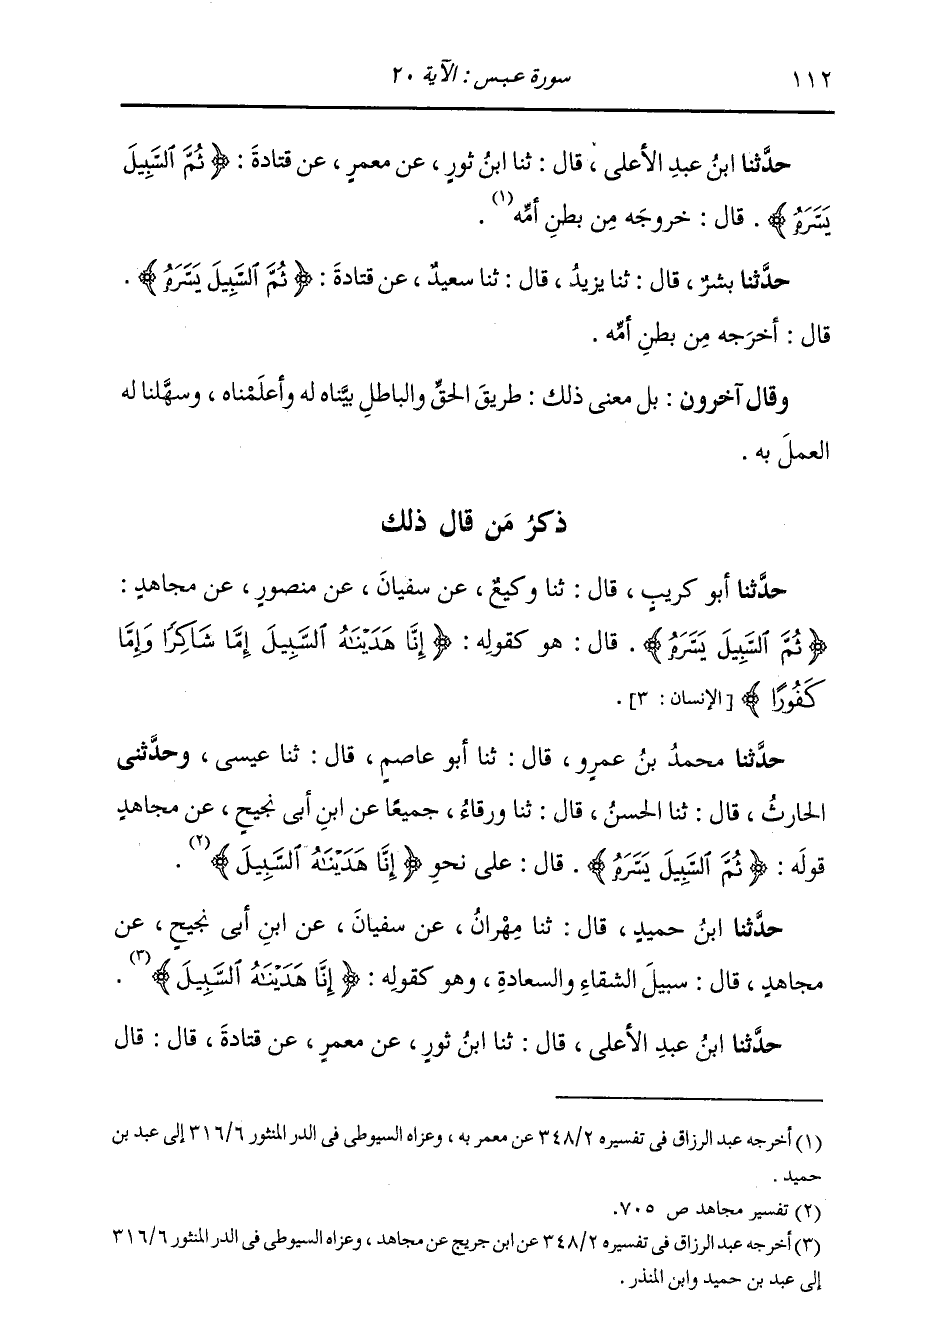 ١١٢ سورة عبس : الآية ٢٠
حدَّثنا ابنُ عبدِ الأعلى ، قال : ثنا ابنُ ثورٍ ، عن معمرٍ ، عن قتادةَ : ﴿ ثُمَّ ٱلسَّبِيلَ
يَسَّرَهُ ﴾ . قال : خروجَه مِن بطنِ أمِّه(١) .
حدَّثنا بشرٌ ، قال : ثنا يزيدُ ، قال : ثنا سعيدٌ ، عن قتادةَ : ﴿ ثُمَّ ٱلسَّبِيلَ يَسَّرَهُ ﴾ .
قال : أخرَجه مِن بطنِ أمِّه .
وقال آخرون : بل معنى ذلك : طريقَ الحقِّ والباطلِ بيَّناه له وأعلَمْناه ، وسهَّلنا له
العملَ به .
ذكرُ مَن قال ذلك
حدَّثنا أبو كريبٍ ، قال : ثنا وكيعٌ ، عن سفيانَ ، عن منصورٍ ، عن مجاهدٍ :
﴿ ثُمَّ ٱلسَّبِيلَ يَسَّرَهُ ﴾ . قال : هو كقولِه : ﴿ إِنَّا هَدَيْنَٰهُ ٱلسَّبِيلَ إِمَّا شَاكِرًا وَإِمَّا
كَفُورًا ﴾ [ الإنسان : ٣] .
حدَّثنا محمدُ بنُ عمرٍو ، قال : ثنا أبو عاصمٍ ، قال : ثنا عيسى ، وحدَّثنى
الحارثُ ، قال : ثنا الحسنُ ، قال : ثنا ورقاءُ ، جميعًا عن ابنِ أبى نجيحٍ ، عن مجاهدٍ
قولَه : ﴿ ثُمَّ ٱلسَّبِيلَ يَسَّرَهُ ﴾ . قال : على نحوِ ﴿ إِنَّا هَدَيْنَٰهُ ٱلسَّبِيلَ ﴾(٢) .
حدَّثنا ابنُ حميدٍ ، قال : ثنا مِهْرانُ ، عن سفيانَ ، عن ابنِ أبى نجيحٍ ، عن
مجاهدٍ ، قال : سبيلَ الشقاءِ والسعادةِ ، وهو كقولِه : ﴿ إِنَّا هَدَيْنَٰهُ ٱلسَّبِيلَ ﴾(٣) .
حدَّثنا ابنُ عبدِ الأعلى ، قال : ثنا ابنُ ثورٍ ، عن معمرٍ ، عن قتادةَ ، قال : قال
(١) أخرجه عبد الرزاق فى تفسيره ٣٤٨/٢ عن معمر به ، وعزاه السيوطى فى الدر المنثور ٣١٦/٦ إلى عبد بن
حميد .
(٢) تفسير مجاهد ص ٧٠٥.
(٣) أخرجه عبد الرزاق فى تفسيره ٣٤٨/٢ عن ابن جريج عن مجاهد ، وعزاه السيوطى فى الدر المنثور ٣١٦/٦
إلى عبد بن حميد وابن المنذر .